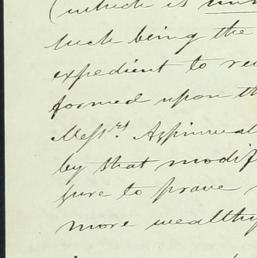 (which is
such being the
expedient to re
formed upon th
Mess.rs Aspinwal
by that modif
sure to prove
more wealthy